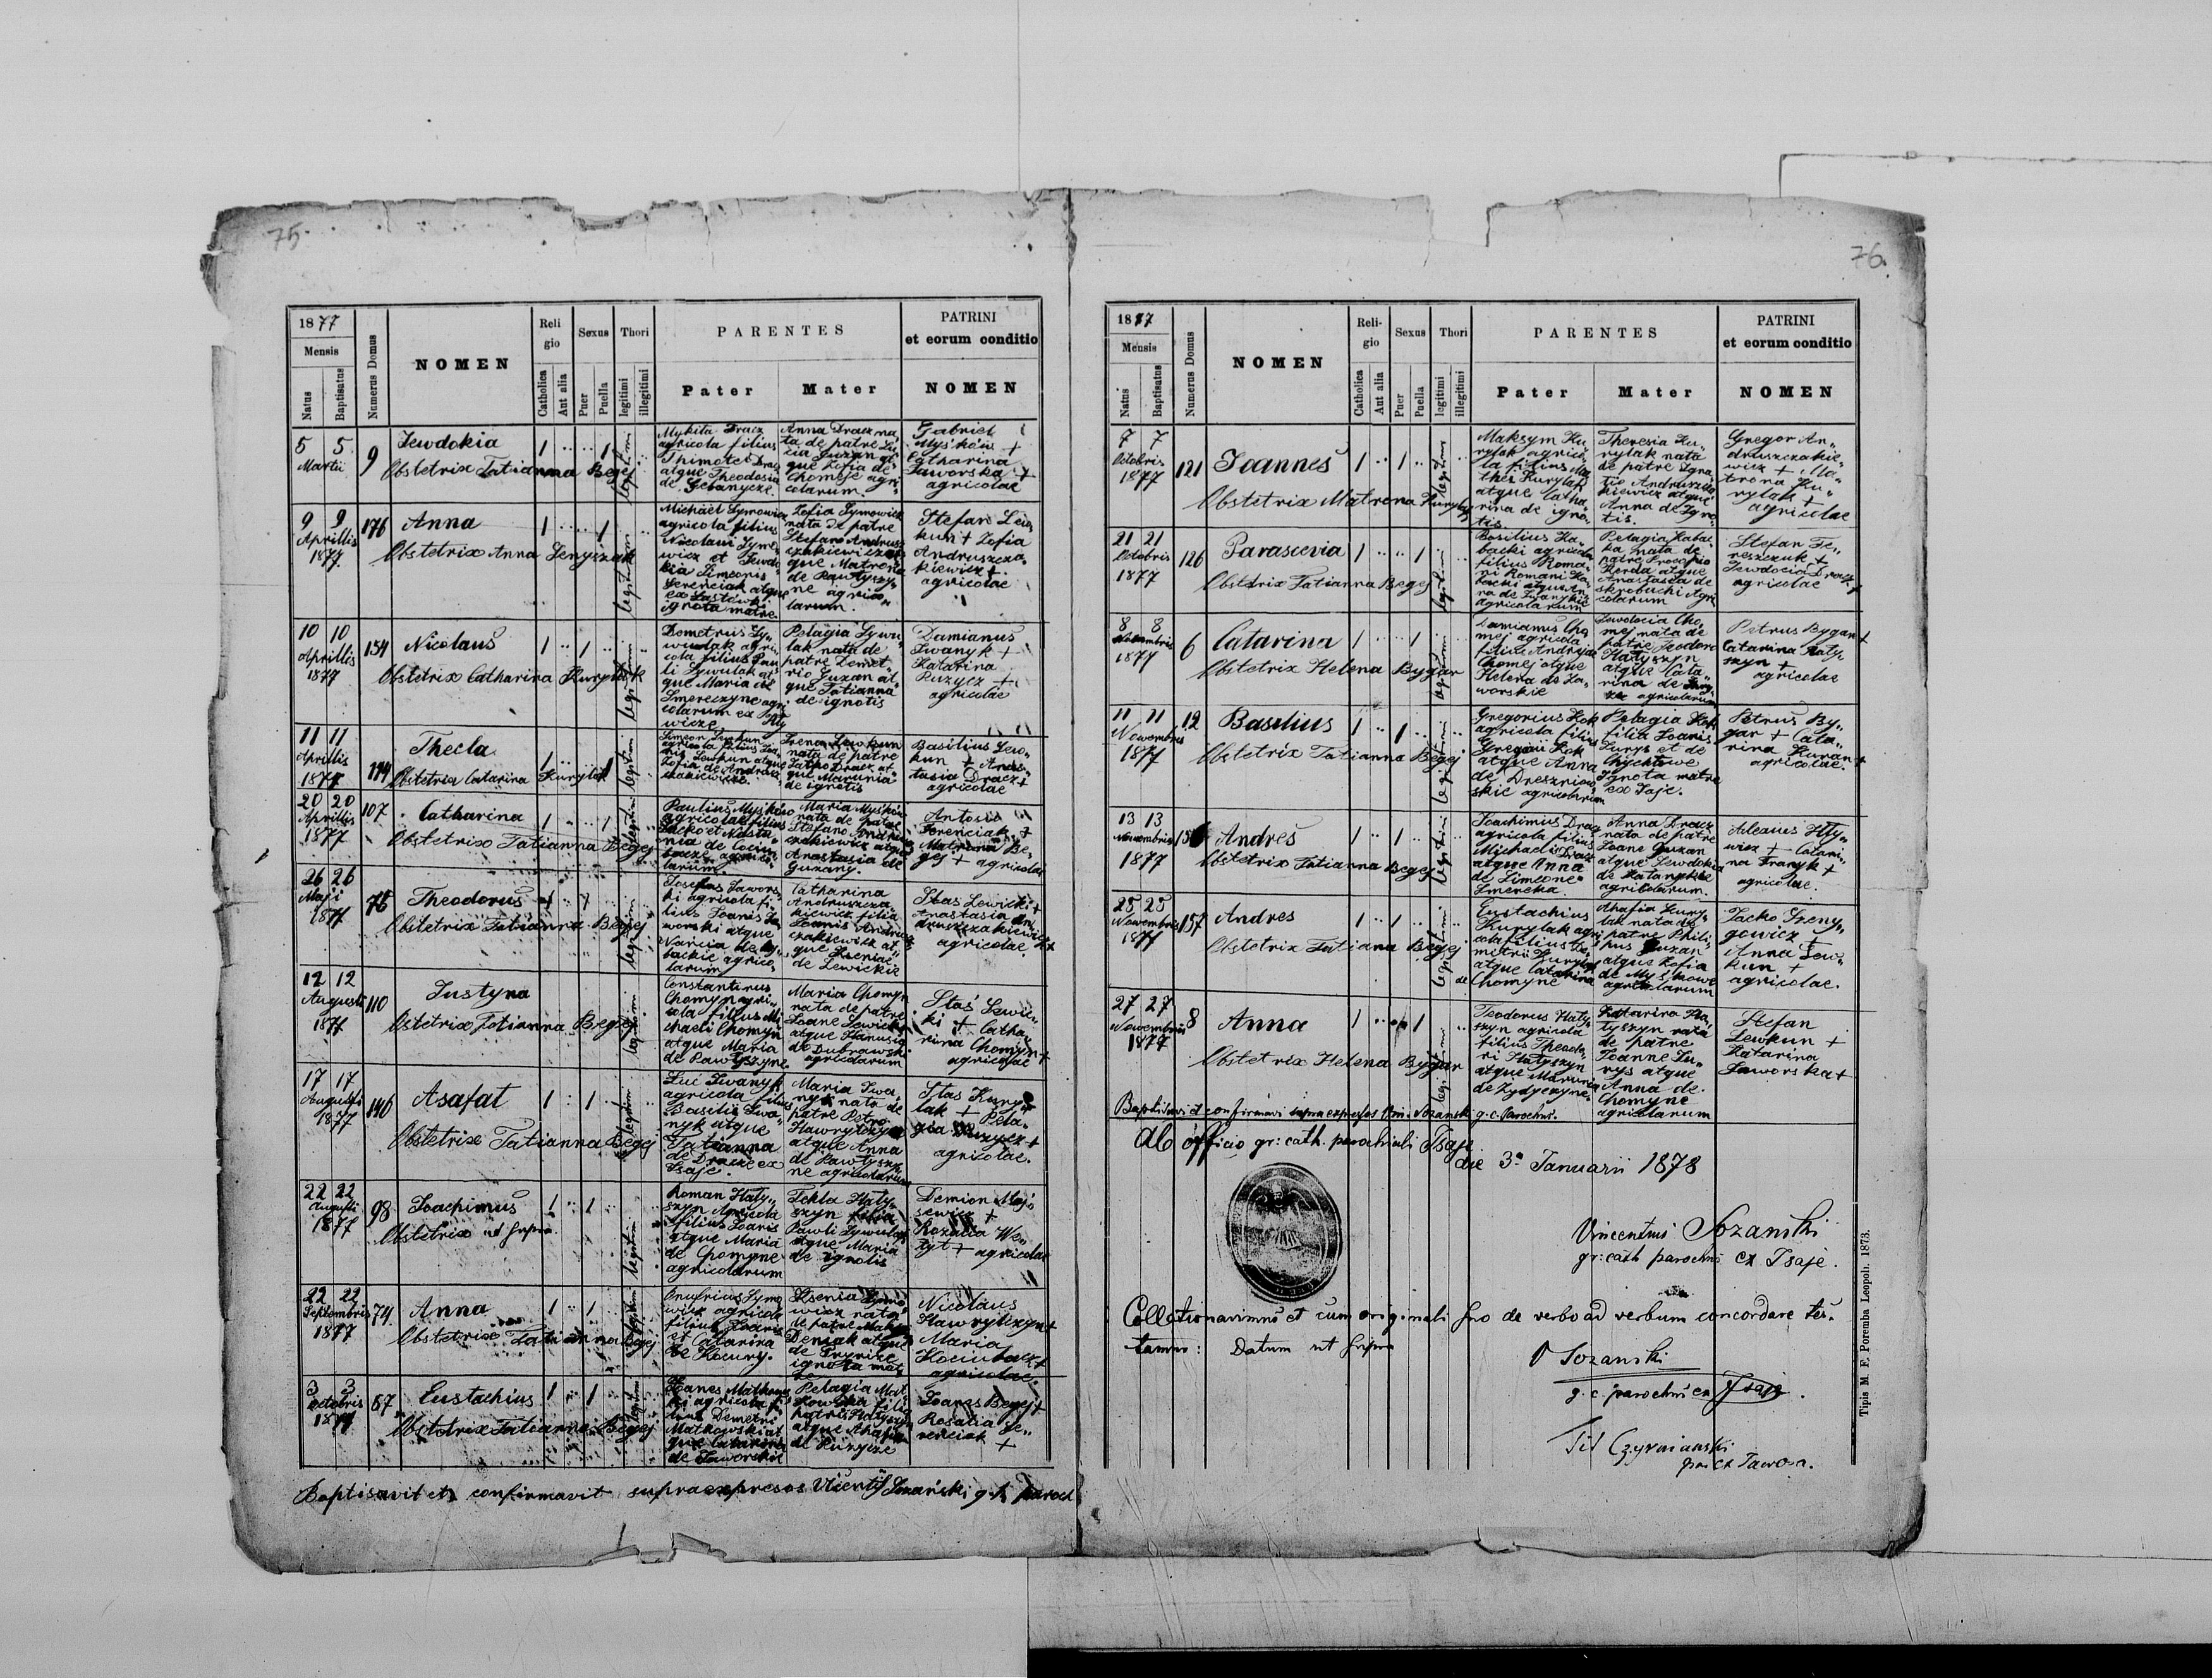 75.
1877
Mensis
Natus
Baptisatus
Numerus Domus
NOMEN
Reli
gio
Catholica
Aut alia
Sexus
Puer
Puella
Thori
legitimi
illegitimi
PARENTES
Pater
Mater
PATRINI
et eorum conditio
NOMEN
5 5
Martii
9
Jewdokia
Obstetrix Tatianna Begej
Mykita Dracz
agricola filius
Thimotei Dracz
atque Theodosia
Anna Dracz na
ta de patre
Guzan at
que Zofia de
Chomeje agri
colarum.
Gabriel
Myśków +
Catharina
Jaworska +
agricolae
9 9
Aprillis
1877
176
Anna
Obstetrix Anna Senyszak
Michael Symowicz
agricola filius
Nicolaui Symo
wicz et
kia Simeonis
Ferenciak atque
ignota matre
Zofia Symowicz
nata de patre
Stefano Andrusz
czakiewicz at
que Matrena
de Pawtyszy
ne agrico
larum.
Stefan Lew
kun + Zofia
Andruszcza
kiewicz +
agricolae
10 10
Aprillis
1877
154
Nicolaus
Obstetrix Catharina Kurylak
Demetrius Sy„
wulak agri
cola filius Pau
li Sywulak at
que Maria de
Smereczyne agri
colarum ex
Pelagia Sywu
lak nata de
patre Demet„
rio Guzan at„
que Tatianna
de ignotis
Damianus
Iwanyk +
Katarina
Ruzycz +
agricolae
11 11
Aprillis
1877
114
Thecla
Obstetrix Catarina Kurylak
Simeon Lewkun
agricola filius Joa
nis Lewkun atque
Zofia de Andrusz
czakiewicze
Irena Lewkun
nata de patre
Jacko Dracz at
que Marunia
de ignotis
Basilius Lew„
kun + Anas„
tasia Dracz +
agricolae
20 20
Aprillis
1877
107
Catharina
Obstetrix Tatianna Begej
Paulius Myśków
agricola filius
Jacko et Nasta
nia de Cocim
bacze agrico
larum.
Maria Myśków
nata de patre
Stefano Andru
czakiewicz atque
Anastasia de
Guzany.
Antosio
Ferenciak +
Matrena Be„
gej + agricolae
26 26
Maji
1877
75
Theodorus
Obstetrix Tatianna Begej
Josefus Jawors„
ki agricola fi
lius Joanis Ja
worski atque
Warcia de Ry
backie agrico
larum
Catharina
Andruszcza
kiewicz filia
Joanis Andrusz
czakiewicz at„
que Ksenia
de Lewickie
Stas Lewicki +
Anastasia An
druszczakiewicz +
agricolae.
12 12
Augusti
1877
110
Justyna
Obstetrix Tatianna Begej
Constantinus
Chomyn agri
cola filius Mi
chaeli Chomyn
atque Maria
de Pawtyszyne
Maria Chomyn
nata de patre
Joane Lewicki
atque Hanusia
de Dubrawski
agricolarum
Staś Lewic„
ki + Catha„
rina Chomyn +
agricolae
17 17
Augusti
1877
146
Asafat
Obstetrix Tatianna Begej
Luc Iwanyk
agricola filius
Basilii Iwa
nyk atque
Tatianna
de Dracze ex
Isaje.
Maria Iwa„
nyk nata de
patre Petro
Hawryłczyn
atque Anna
de Pawtyszy
ne agricolarum
Stas Kury
lak + Pela„
gia Ruzycz +
agricolae.
22 22
Augusti
1877
98
Joachimus
Obstetrix ut supra
Roman Haty„
szyn Agricola
filius Joanis
atque Maria
de Chomyne
agricolarum
Tekla Haty„
szyn filia
Pawli Sywulak
atque Maria
de ignotis
Demion Maj
sewicz +
Rozalia We„
zyt + agricolae
22 22
Septembris
1877
74
Anna
Obstetrix Tatianna Begej
Onufrius Symo
wicz agricola
filius Joanis
et Catarina
de Kocury.
Ksenia Symo
wicz nata
de patre Maksy
Deniak atque
ignota mat
Nicolaus
Hawryłczyn +
Maria
Kocimbacz +
agricolae.
3 3
octobris
1877
87
Eustachius
Obstetrix Tatianna Begej
Joanes Matkows
ki agricola fi
lius Demetri
Matkowski at
que Catarina
de Jaworskie
Pelagia Mat„
kowska filia
patris Hatyszyn
atque Ahafia
de Ruzycze
Joanes Begej +
Rosalia Fe„
renciak +
Baptisavit et confirmavit supraexpresos Vicentij Sozański g.k. paroch
76.
1877
Mensis
Natus
Baptisatus
Numerus Domus
NOMEN
Reli-
gio
Catholica
Aut alia
Sexus
Puer
Puella
Thori
legitimi
illegitimi
PARENTES
Pater
Mater
PATRINI
et eorum conditio
NOMEN
7 7
Octobris
1877
121
Joannes
Obstetrix Matrena Kurylak
Maksym Ku„
rylak agrico„
la filius Ma
thei Kurylak
atque Catha„
rina de igno„
tis
Theresia Ku„
rylak nata
de patre Igna
tio Andruszcza
kiewicz atque
Anna de Igno„
tis.
Gregor An„
druszczakie„
wicz + Ma„
trena Ku„
rylak +
agricolae
21 21
Octobris
1877
126
Parascevia
Obstetrix Tatianna Begej
Basilius Ka„
backi agricola
filius Roma„
ni Romani Ka„
backi atque An
na de Iwanykie
agricolarum
Pelagia Kabac
ka nata de
patre Procopio
Kerda atque
Anastasia de
Skrobuchi Agri
colarum
Stefan Te„
reszczuk +
Jewdocia Dracz +
agricolae
8 8
Novembris
1877
6
Catarina
Obstetrix Helena Bygar
Damianus Cho
mej agricola
filius Andreja
Chomej atque
Helena de Ja„
worskie
Jewdocia Cho„
mej nata de
patre Teodoro
Hatyszyn
atque Cata„
rina de
agricolarum
Petrus Bygar +
Catarina Haty„
szyn +
agricolae
11 11
Novembris
1877
12
Basilius
Obstetrix Tatianna Begej
Gregorius Kok
agricola filius
Gregorii Kok
atque Anna
de Dreszniow
skie agricolarum
Pelagia Kok
filia Joanis
Zurys et de
Chychtowe
Ignota matre
ex Isaje.
Petrus By„
gar + Cata„
rina Huran +
agricolae.
13 13
Novembris
1877
Andres
Obstetrix Tatianna Begej
Joachimus Dracz
agricola filius
Michaelis Dracz
atque Anna
de Simeone
Smereka.
Anna Dracz
nata de patre
Joane Guzan
atque Jewdokia
de Katanykie
agricolarum.
wicz + Catari„
na Franyk +
agricolae.
25 25
Novembris
1877
157
Andres
Obstetrix Tatiana Begej
Eustachius
Kurylak agri
cola filius De„
mitrii Kurylak
atque Catarina
de Chomyne
Ahafia Kury„
lak nata de
patre Phili„
pus Guzan
atque Zofia
de Myśkowe
agricolarum
Jacko Gzeny„
gowicz +
Anna Lew„
kun +
agricolae.
27 27
Novembris
1877
8
Anna
Obstetrix Helena Bygar
Teodorus Haty„
szyn agricola
filius Theodo„
ri Hatyszyn
atque Marunia
de Zydyczyne.
Katarina Ha„
tyszyn nata
de patre
Joanne Zu„
rys atque
Anna de
Chomyne
agricolarum
Stefan
Lewkun +
Katarina
Jaworska +
Baptisavi et confirmavi supraexpresos Vin. Sozanski g.c. Parochus.
Ab officio gr: cath. parochiali Isaje
die 3a Januarii 1878
Vincentius Sozanski
gr: cath parochus ex Isaje.
Collationavimus et cum originali suo de verbo ad verbum concordare tes„
tamur: Datum ut supra
V Sozanski
g.c. parochus ex Isaje.
Tit Czyrnianski
par ex Jawora.
Tipis M. F. Poremba Leopoli. 1873.